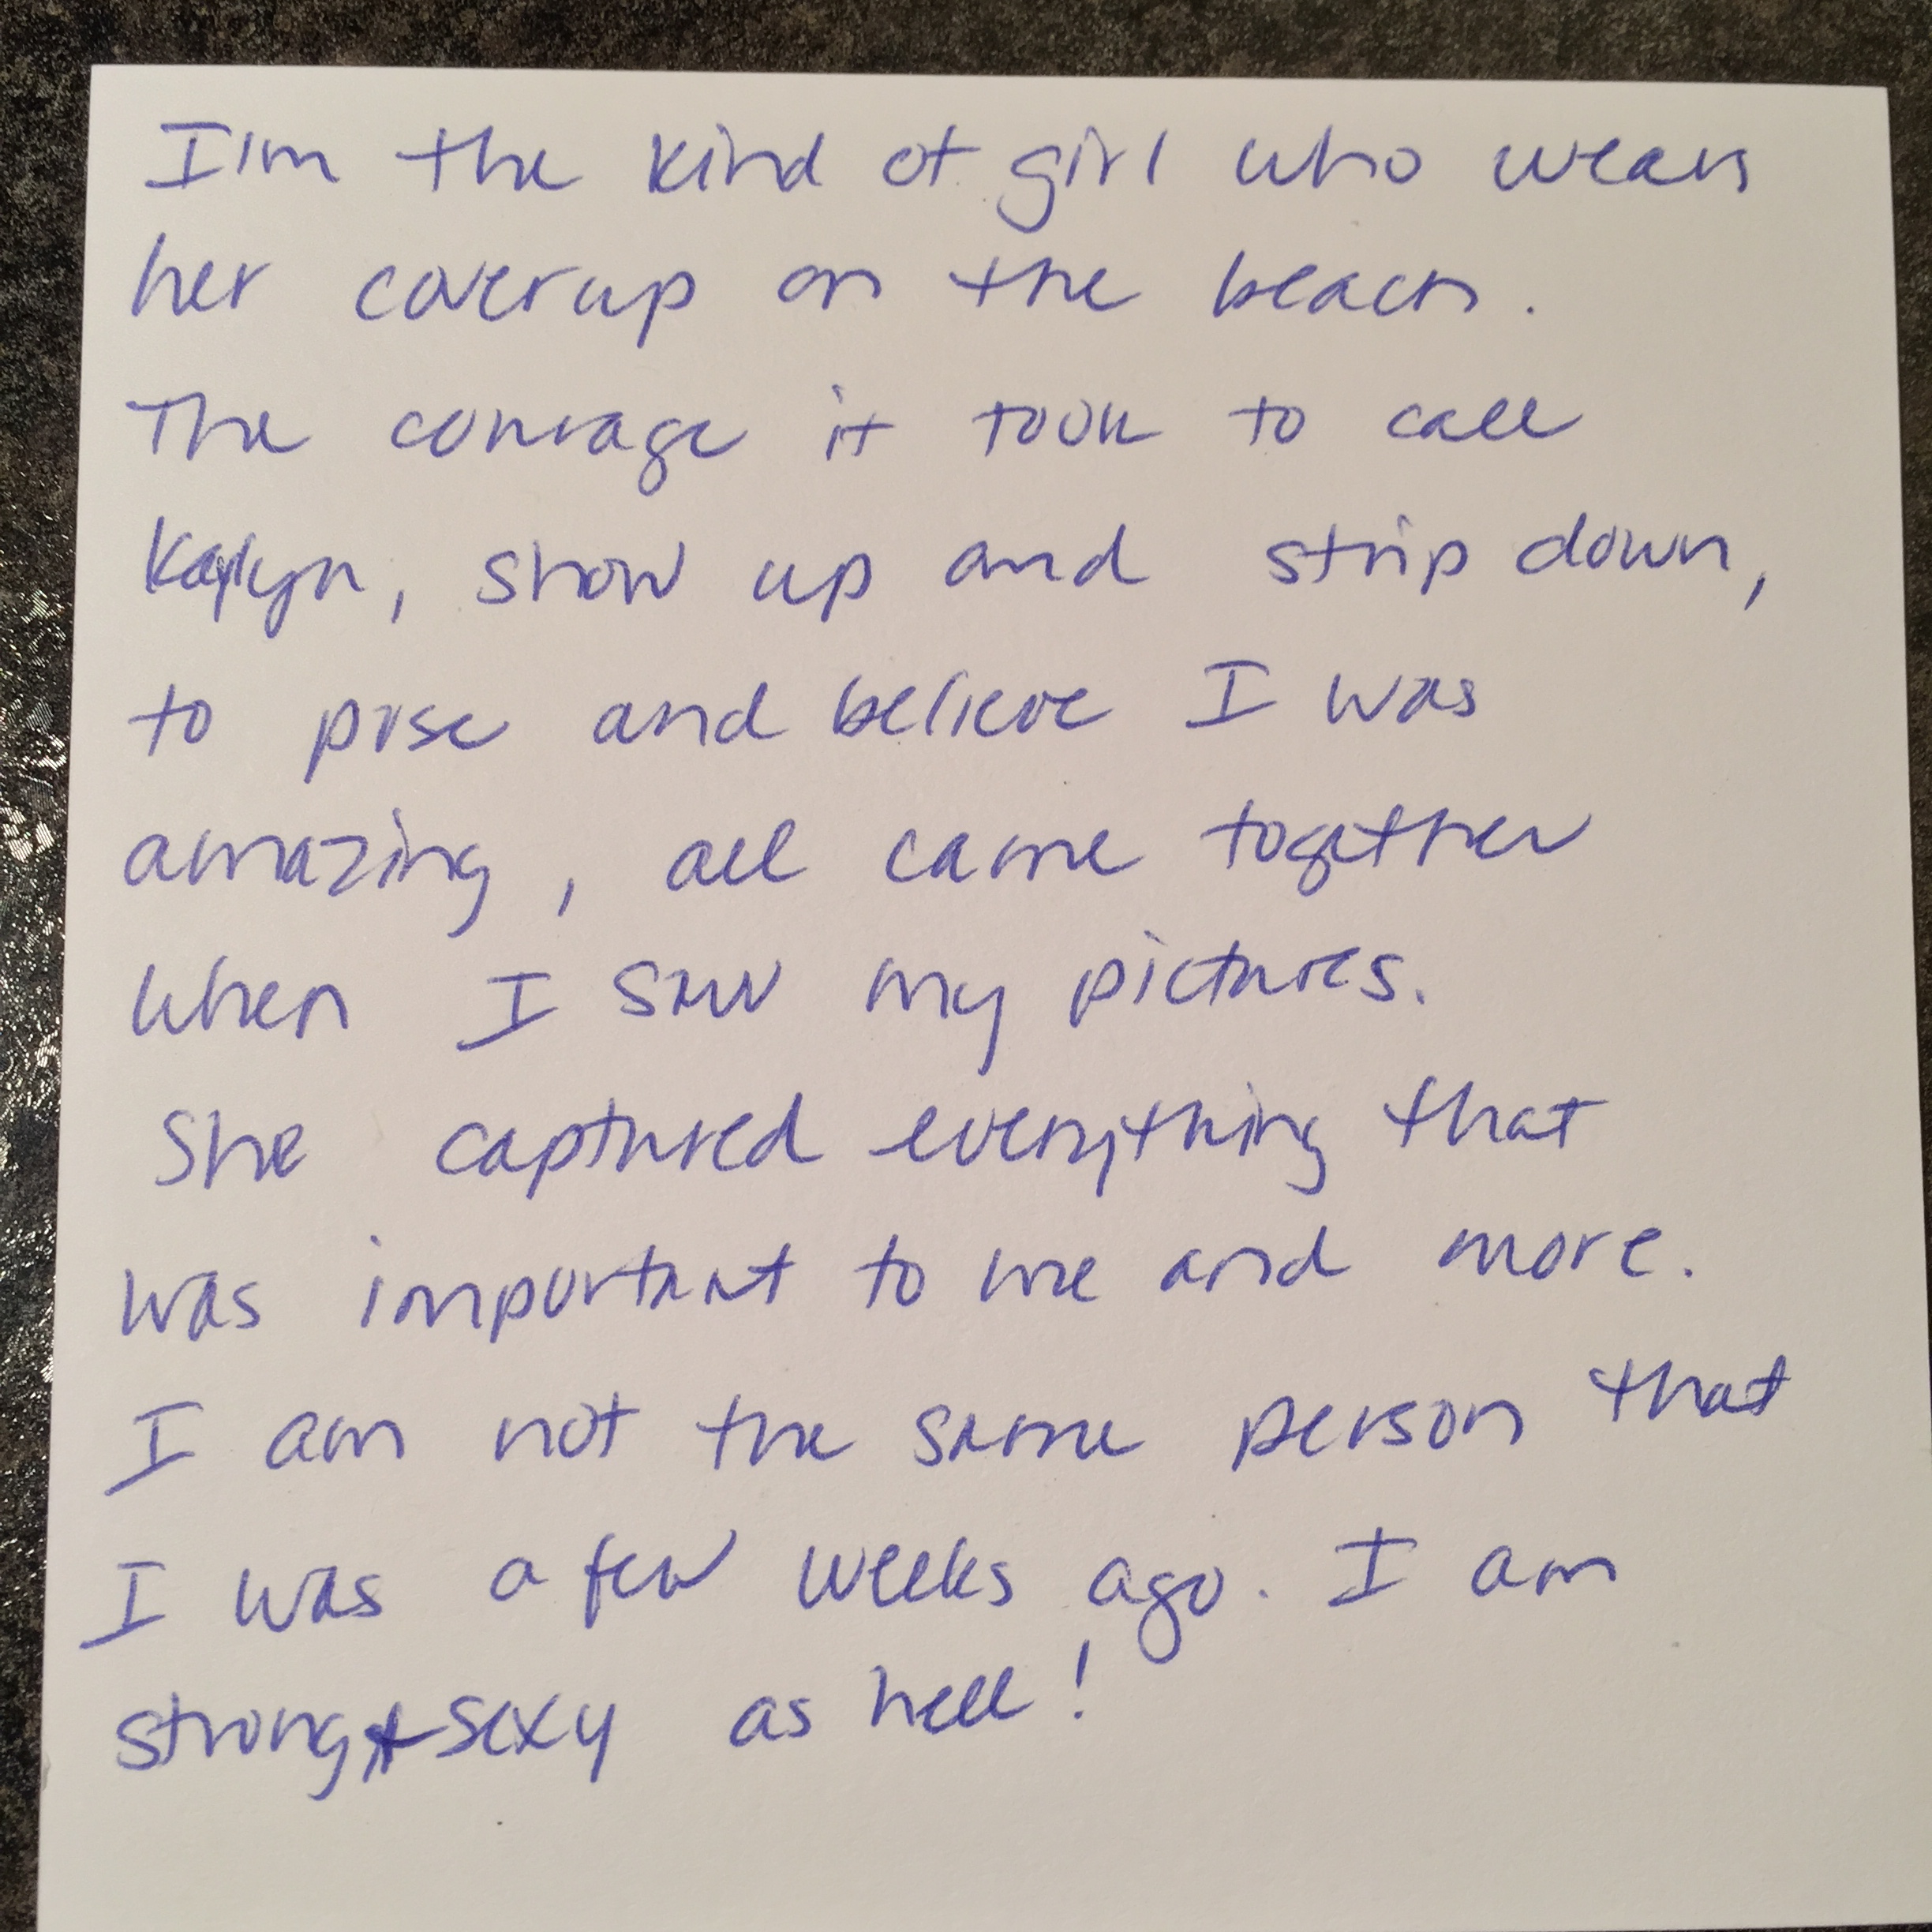 I'm the kind of girl who wears
her coverup on the beach.
The courage it took to call
Kaylyn, show up and strip down,
to pose and believe I was
amazing, all came together
when I saw my pictures.
She captured everything that
was important to me and more.
I am not the same person that
I was a few weeks ago. I am
strong + sexy as hell!